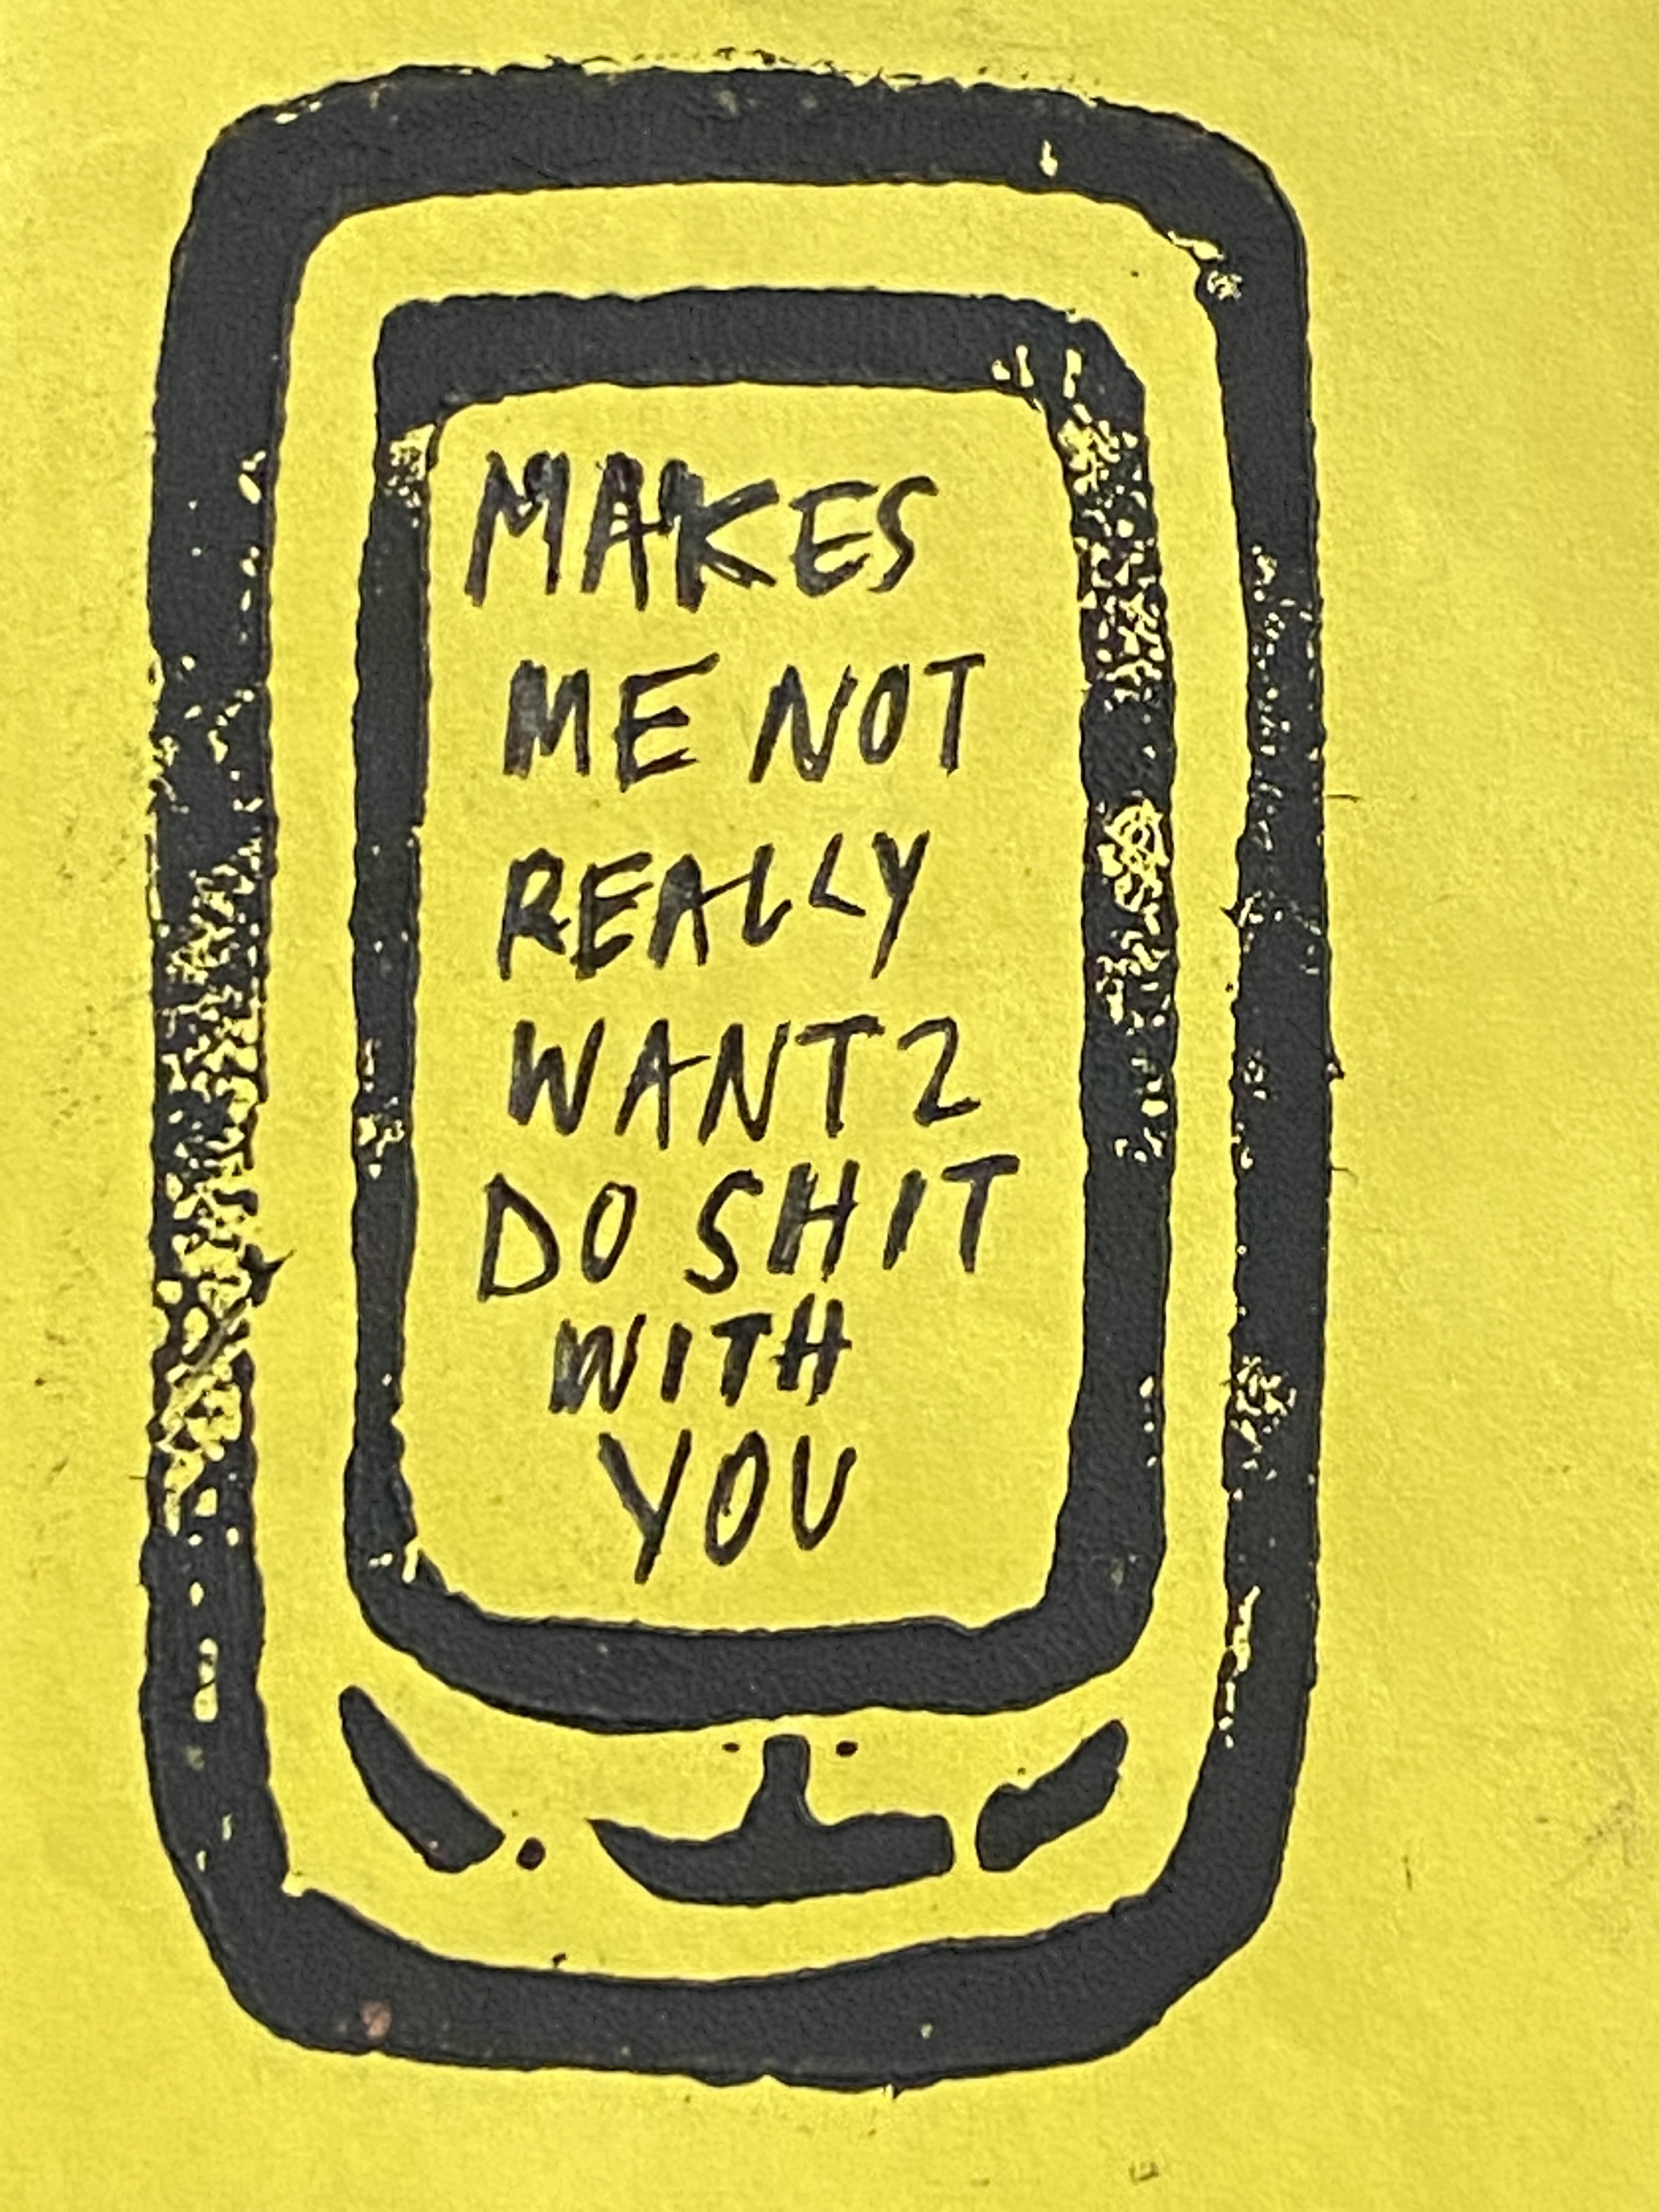 MAKES
ME NOT
REALLY
WANT 2
DO SHIT
WITH
YOU